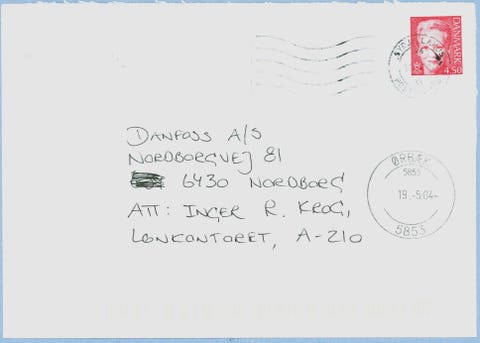 DANMARK
4.50
DANFOSS A/S
NORDBORGVEJ 81
6430 NORDBORG
ATT: INGER R. KROG,
LØNKONTORET, A-210
ØRBÆK
5853
19.-5.04-
5853